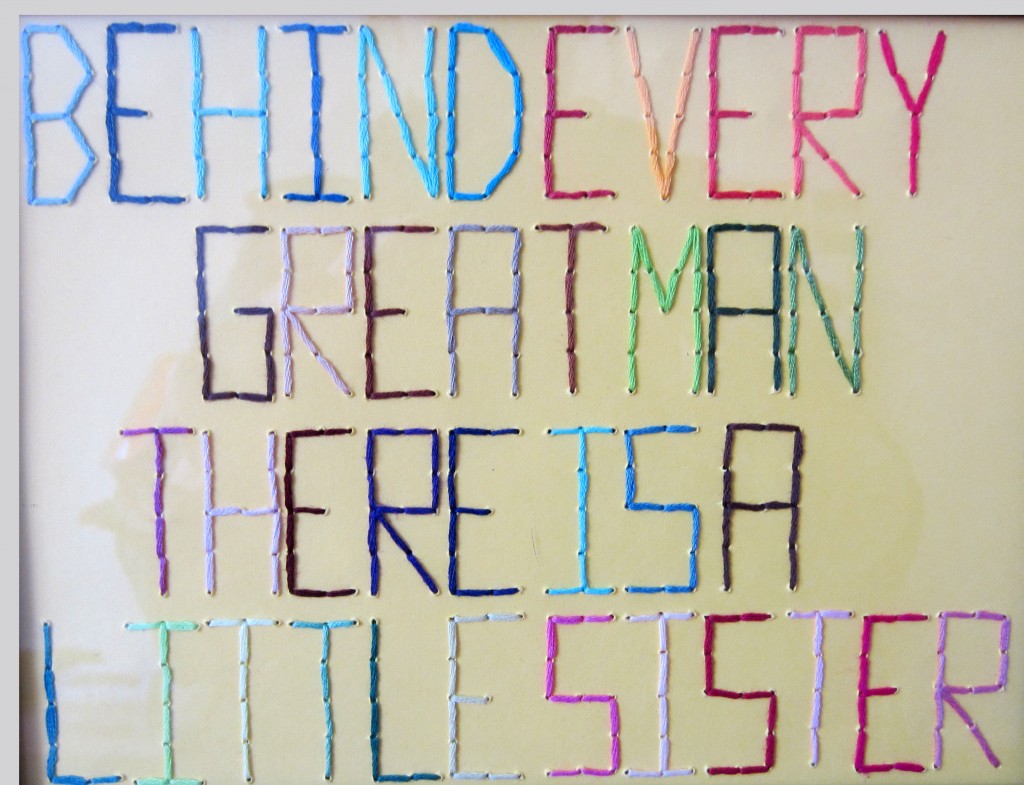 BEHIND EVERY
GREAT MAN
THERE IS A
LITTLE SISTER